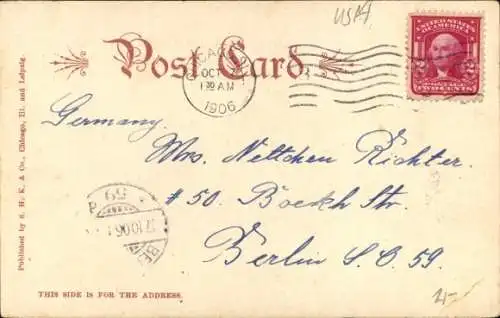 USA
Post Card
CHICAGO, ILL.
OCT 7
1 30 AM
1906
UNITED STATES
OF AMERICA
2 2
POSTAGE
TWO CENTS
Germany.
Mrs. Nettchen Richter.
# 50. Boeckh Str.
Berlin S. O. 59.
59
17.10.06.
BE
Published by S. H. K. & Co., Chicago, Ill. and Leipzig.
THIS SIDE IS FOR THE ADDRESS.
2,-